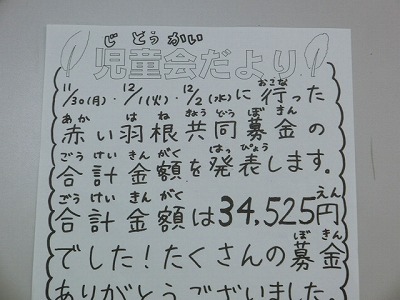 じどうかい
児童会だより
11/30(月)・12/1(火)・12/2(水)に行った
赤い羽根共同募金の
合計金額を発表します。
合計金額は34,525円
でした!たくさんの募金
ありがとうございました。